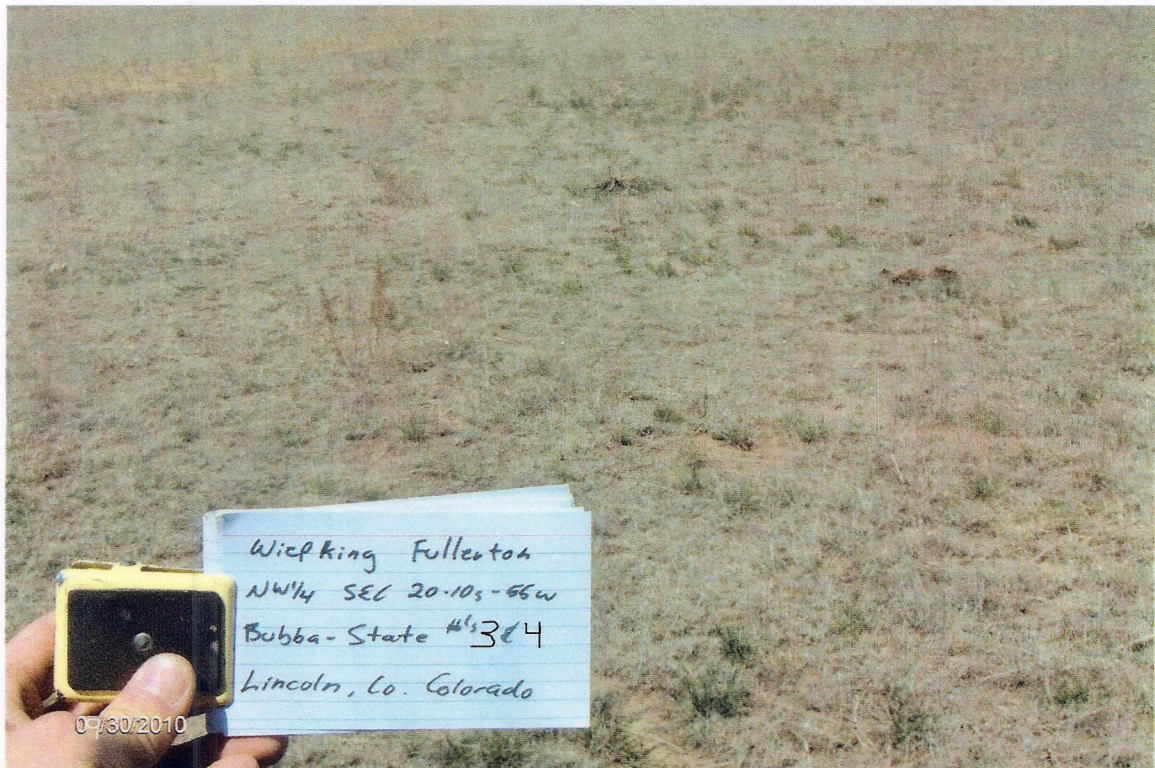 Wiepking Fullerton
NW¼ SEC 20-10s-56w
Bubba-State #'s 3 & 4
Lincoln, Co. Colorado
09/30/2010